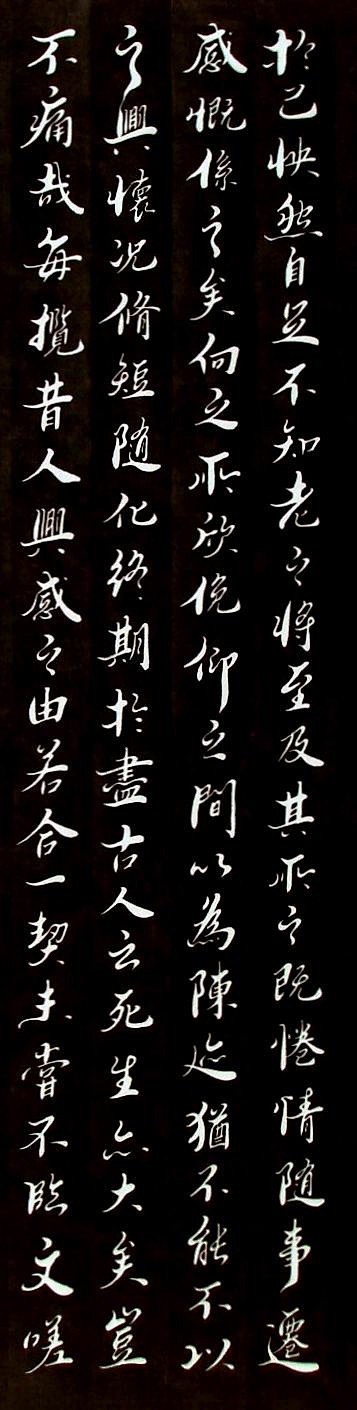 於己怏然自足不知老之將至及其所之既惓情隨事遷
感慨係之矣向之所欣俛仰之間以為陳迹猶不能不以
之興懷況脩短隨化終期於盡古人云死生亦大矣豈
不痛哉每攬昔人興感之由若合一契未嘗不臨文嗟